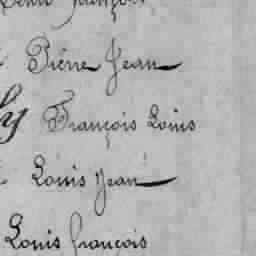 Pierre Jean
François Louis
Louis Jean
Louis françois